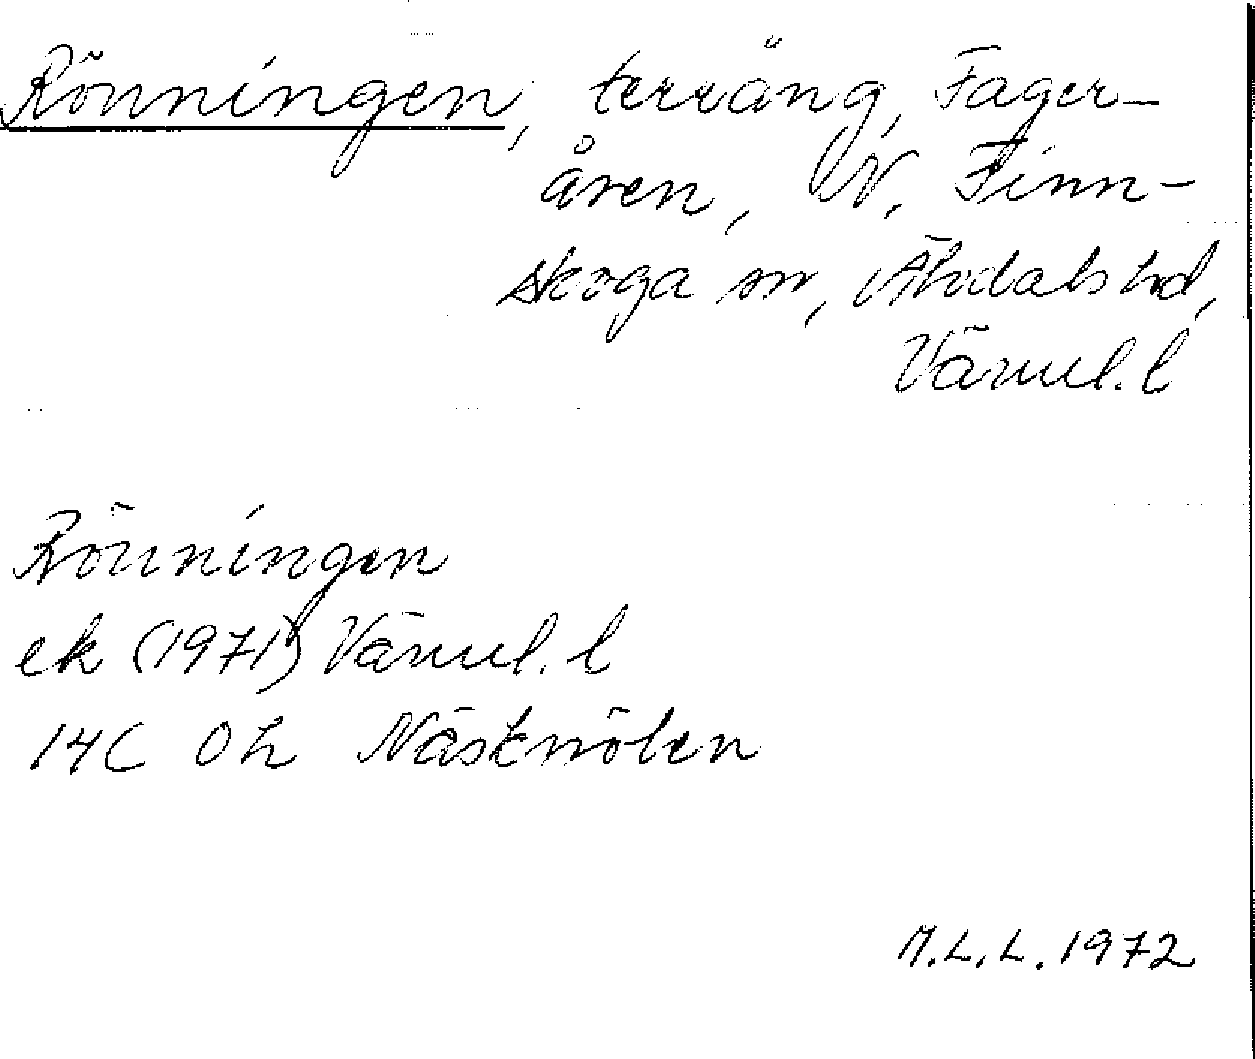 Rönningen, terräng, Fager-
åsen, N. Finn-
skoga sn, Älvdals hd,
Värml. l
Rönningen
ek (1971) Värml. l
14C 0h Näsknölen
M.L.L. 1972